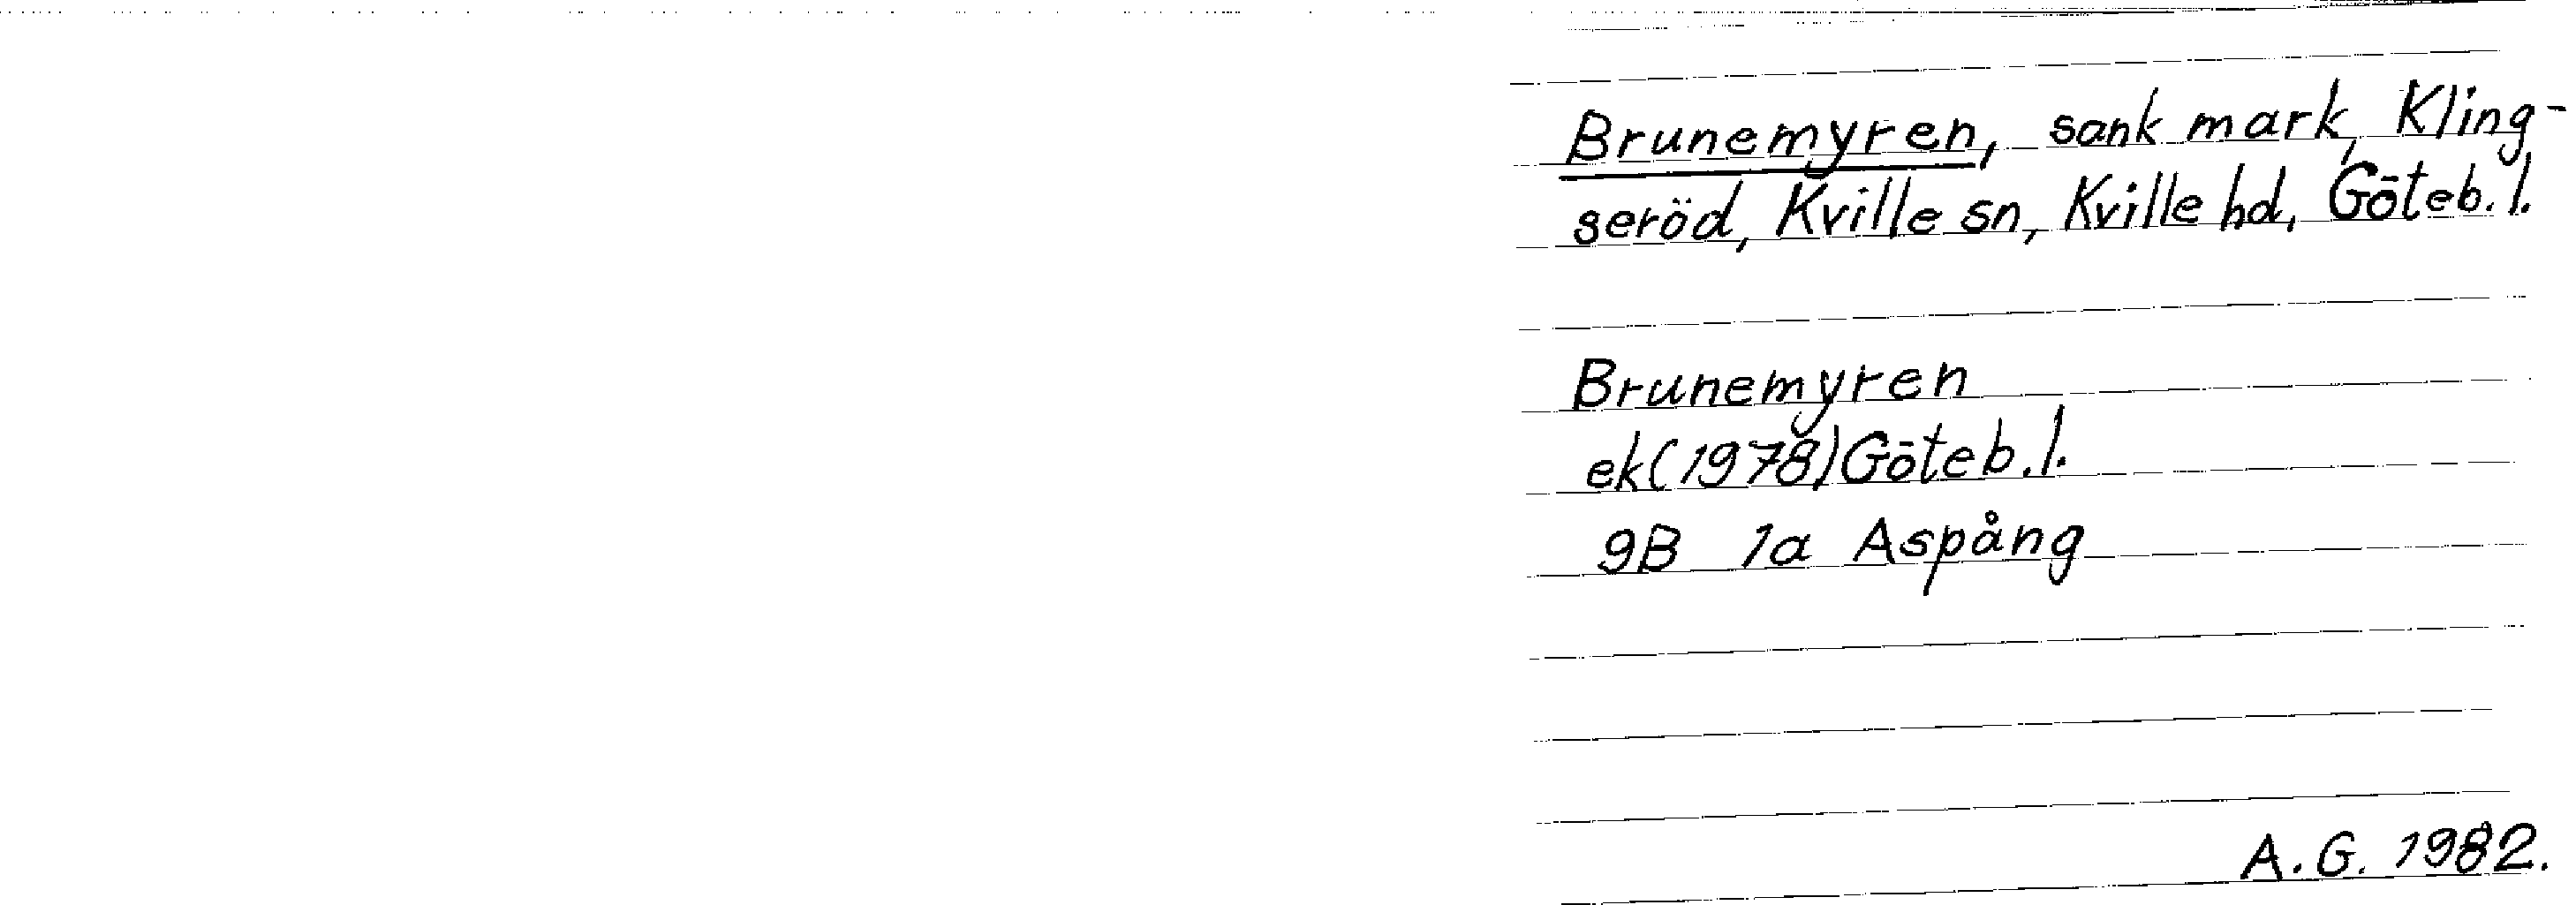 Brunemyren, sank mark, Kling-
seröd, Kville sn, Kville hd, Göteb. l.
Brunemyren
ek (1978) Göteb. l.
9B 1a Aspång
A. G. 1982.